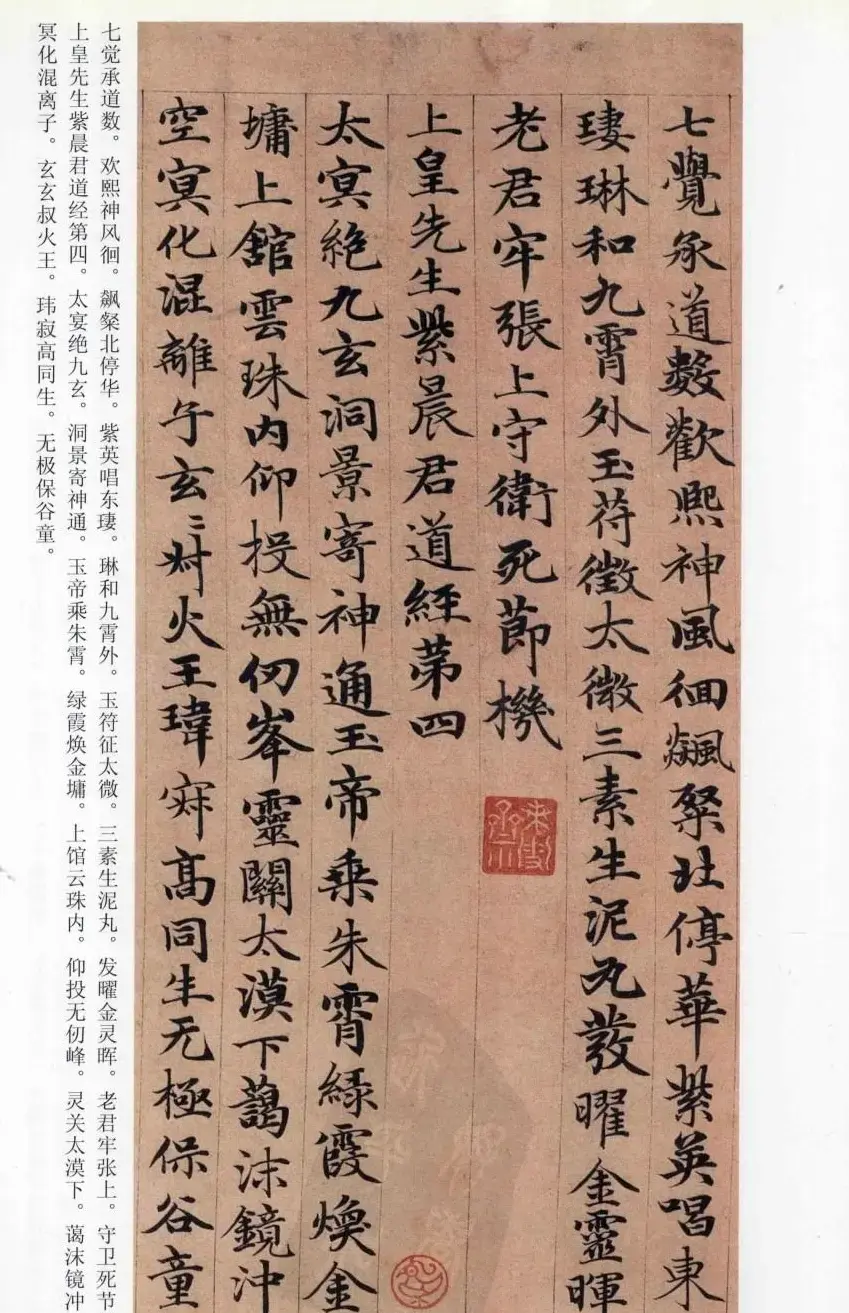 七覺承道數歡熙神風徊飊粲北停華紫英唱東
琅琳和九霄外玉苻徵太微三素生泥丸發曜金靈暉
老君牢張上守衛死節機
上皇先生紫晨君道經第四
太冥絶九玄洞景寄神通玉帝乘朱霄緑霞煥金
墉上館雲珠内仰投無仞峯靈關太漠下藹沫鏡沖
空冥化混離子玄〻叔火王瑋寂高同生无極保谷童
七觉承道数。欢熙神风徊。飙粲北停华。紫英唱东琅。琳和九霄外。玉符征太微。三素生泥丸。发曜金灵晖。老君牢张上。守卫死节
上皇先生紫晨君道经第四。太宴绝九玄。洞景寄神通。玉帝乘朱霄。绿霞焕金墉。上馆云珠内。仰投无仞峰。灵关太漠下。蔼沫镜冲
冥化混离子。玄玄叔火王。玮寂高同生。无极保谷童。